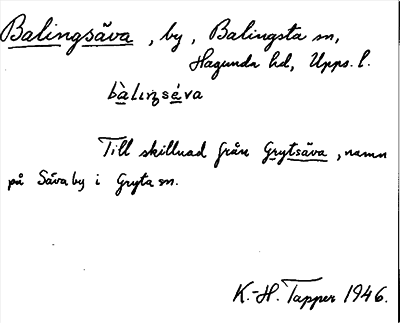 Balingsäva, by, Balingsta sn,
Hagunda hd, Upps. l.
bàlıŋsáva
Till skillnad från Grytsäva, namn
på Säva by i Gryta sn.
K.-H. Tapper 1946.